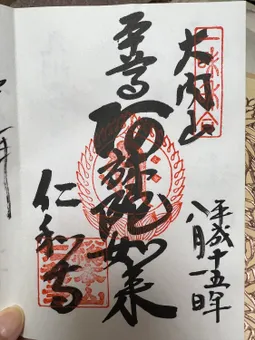 大内山
平成十五年
八月一日
本尊 阿弥陀如来
仁和寺